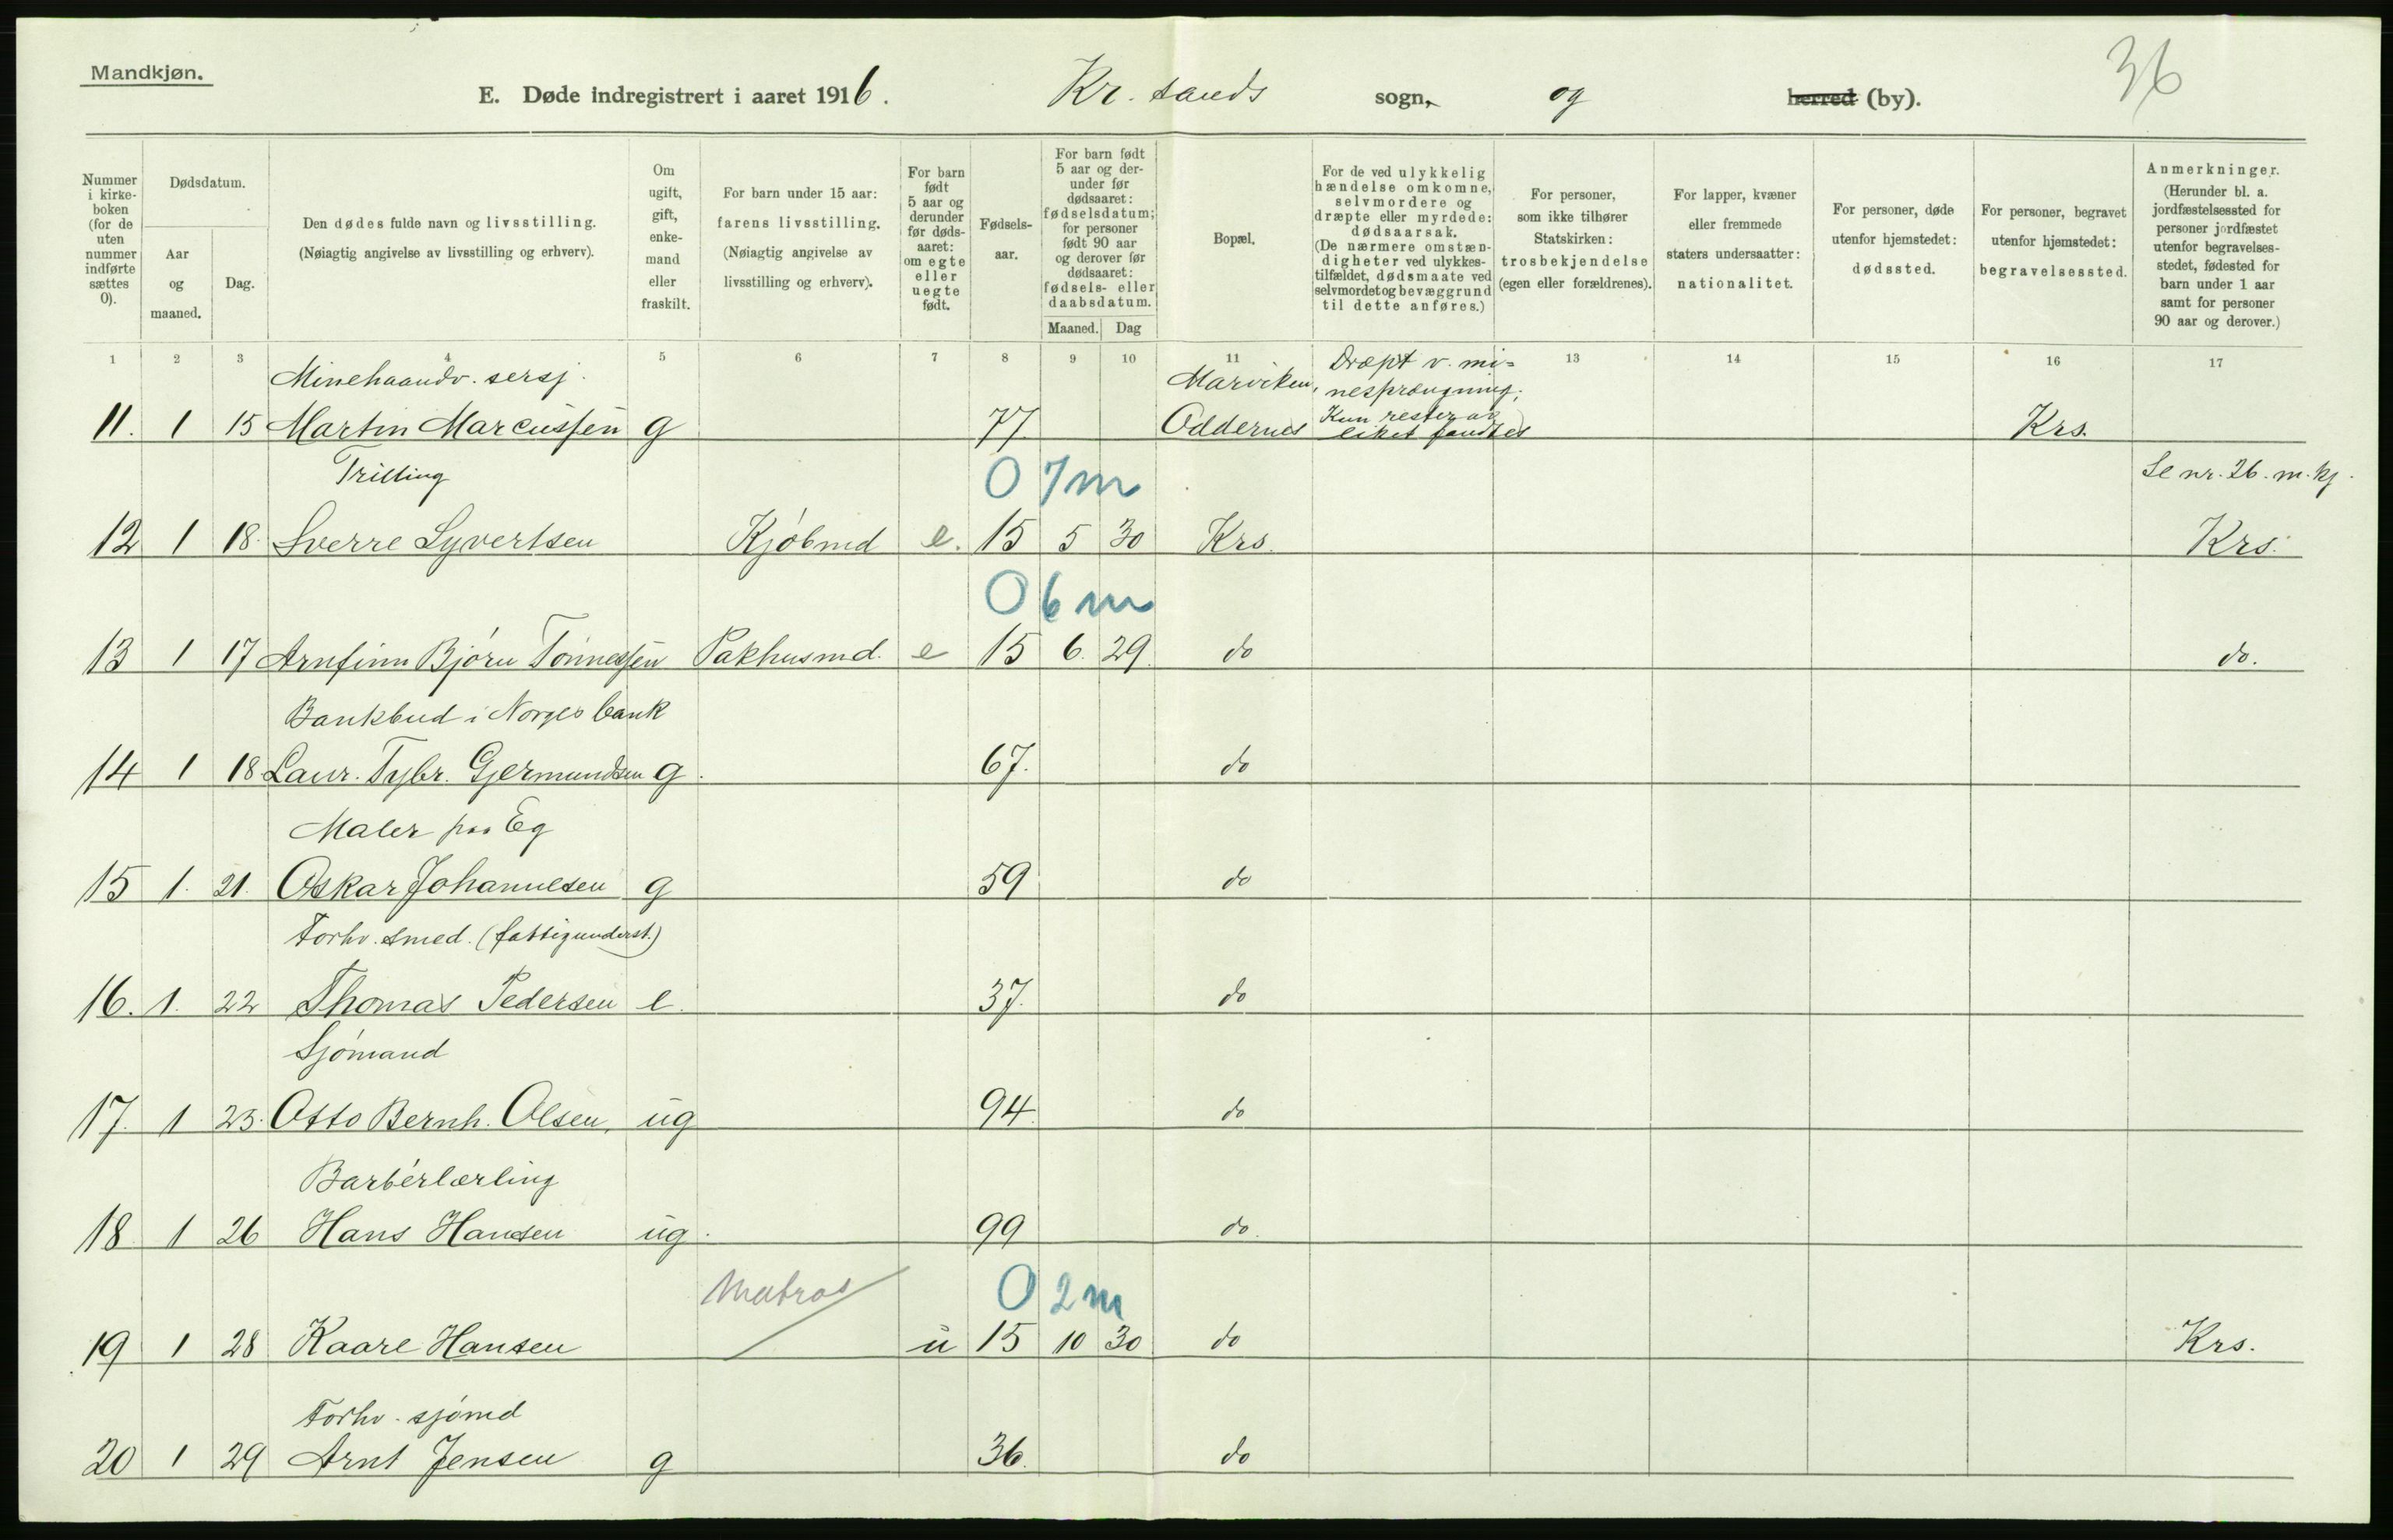 Mandkjøn.
E. Døde indregistrert i aaret 1916. Kr. sands sogn, og herred (by). 36
Nummer i kirkeboken (for de uten nummer indførte sættes 0).
Dødsdatum.
Aar og maaned.
Dag.
Den dødes fulde navn og livsstilling.
(Nøiagtig angivelse av livsstilling og erhverv).
Om ugift, gift, enkemand eller fraskilt.
For barn under 15 aar: farens livsstilling. (Nøiagtig angivelse av livsstilling og erhverv).
For barn født 5 aar og derunder før dødsaaret: om egte eller uegte født.
Fødselsaar.
For barn født 5 aar og derunder før dødsaaret: fødselsdatum; for personer født 90 aar og derover før dødsaaret: fødsels- eller daabsdatum.
Maaned. Dag
Bopæl.
For de ved ulykkelig hændelse omkomne, selvmordere og dræpte eller myrdede: dødsaarsak. (De nærmere omstændigheter ved ulykkestilfældet, dødsmaate ved selvmordet og bevæggrund til dette anføres.)
For personer, som ikke tilhører Statskirken: trosbekjendelse (egen eller forældrenes).
For lapper, kvæner eller fremmede staters undersaatter: nationalitet.
For personer, døde utenfor hjemstedet: dødssted.
For personer, begravet utenfor hjemstedet: begravelsessted.
Anmerkninger. (Herunder bl. a. jordfæstelsessted for personer jordfæstet utenfor begravelsesstedet, fødested for barn under 1 aar samt for personer 90 aar og derover.)
1 2 3 4 5 6 7 8 9 10 11 12 13 14 15 16 17
Minehaandv. sersj. Marviken, Dræpt v. mi=
nesprængning;
Kun rester av
11. 1 15 Martin Marcussen g 77. Oddernes liket fandtes Krs.
Trilling 0 7m Se nr. 26. m. kj.
12 1 18. Sverre Syvertsen Kjöbmd e. 15 5 30 Krs. Krs.
0 6m
13 1 17 Arnfinn Bjørn Tönnessen Pakhusmd. e 15 6. 29. do do.
Bankbud i Norges bank
14 1 18 Laur. Tybr. Gjermundsen g. 67. do
Maler paa Eg
15 1. 21. Oskar Johannesen g 59 do
Forhv. smed. (fattigunderst.)
16. 1. 22 Thomas Pedersen e. 37. do
Sjömand
17. 1 23. Otto Bernh. Olsen, ug 94. do
Barbérlærling
18 1 26 Hans Hansen ug. 99 do.
Matros 0 2m
19 1 28 Kaare Hansen u 15 10 30 do Krs.
Forhv. sjömd
20 1 29 Arnt Jensen g 36. do